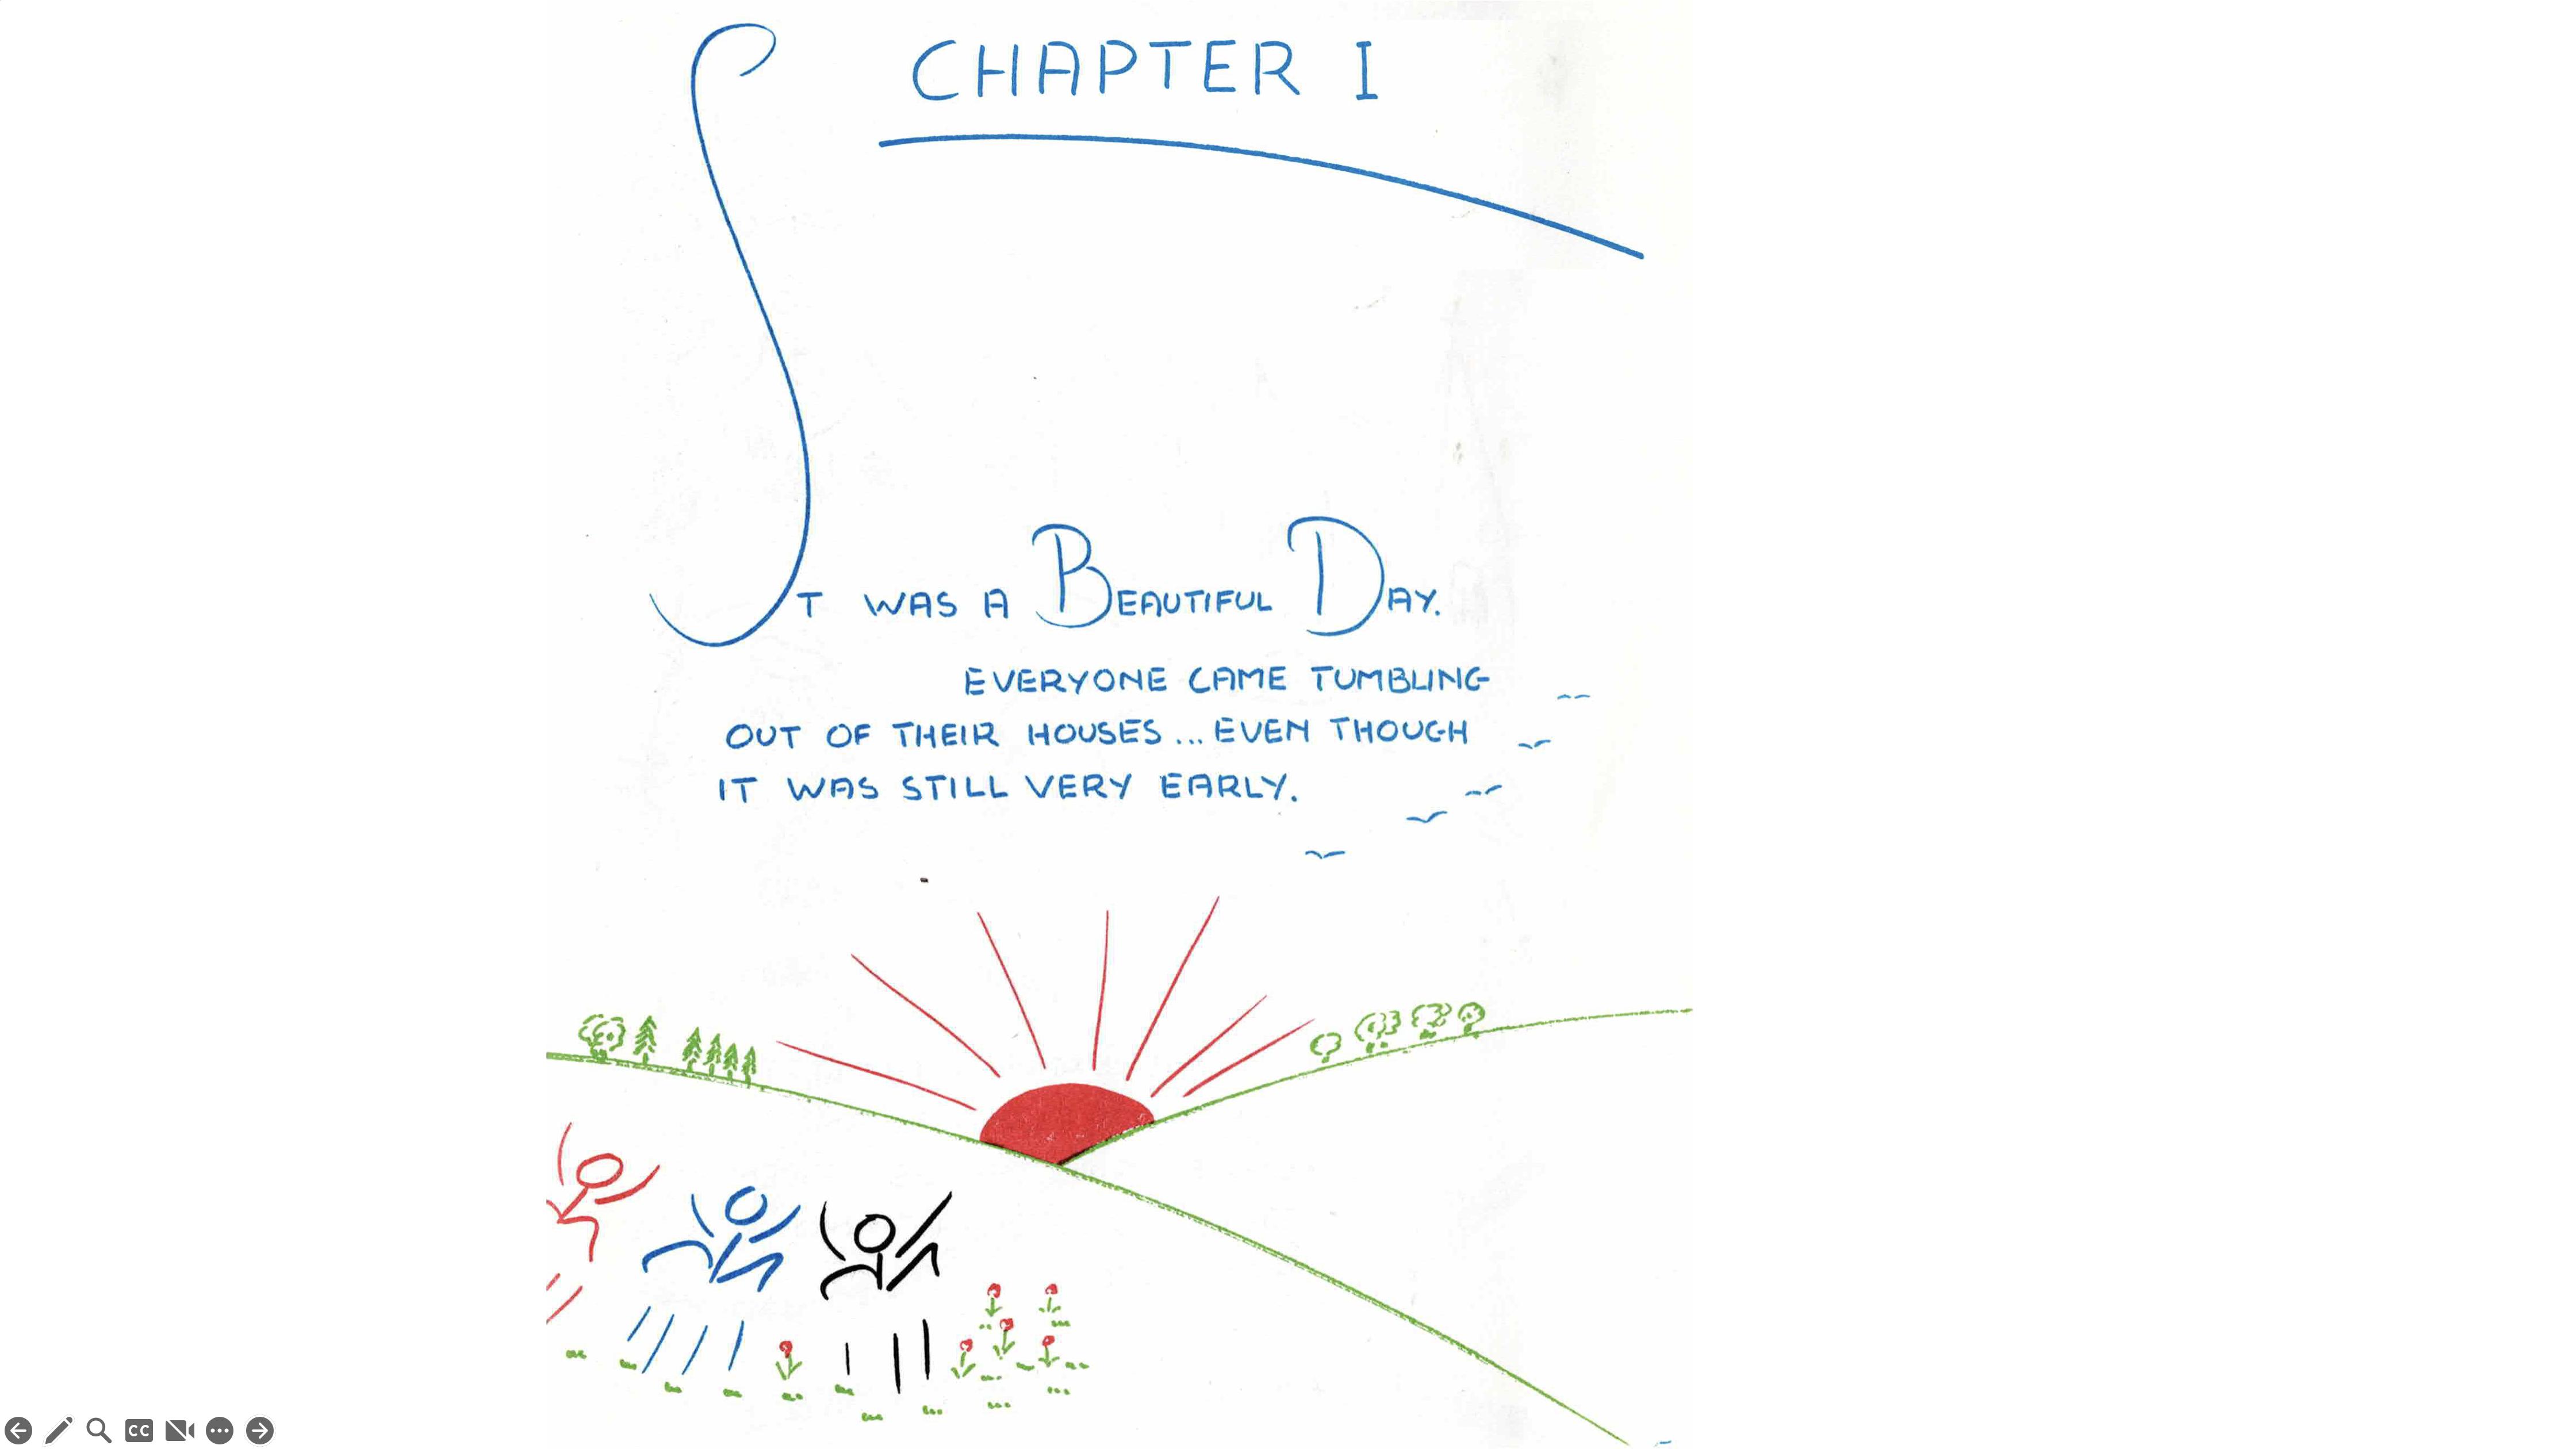 CHAPTER I
IT WAS A BEAUTIFUL DAY.
EVERYONE CAME TUMBLING
OUT OF THEIR HOUSES... EVEN THOUGH
IT WAS STILL VERY EARLY.
CC